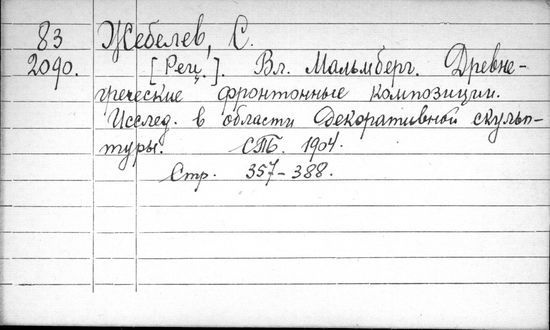 83 Жебелев, С.
2090. [Рец.]. Вл. Мальмберг. Древне-
греческие фронтонные композиции.
Исслед. в области декоративной скульп-
туры. СПБ. 1904.
Стр. 357-388.